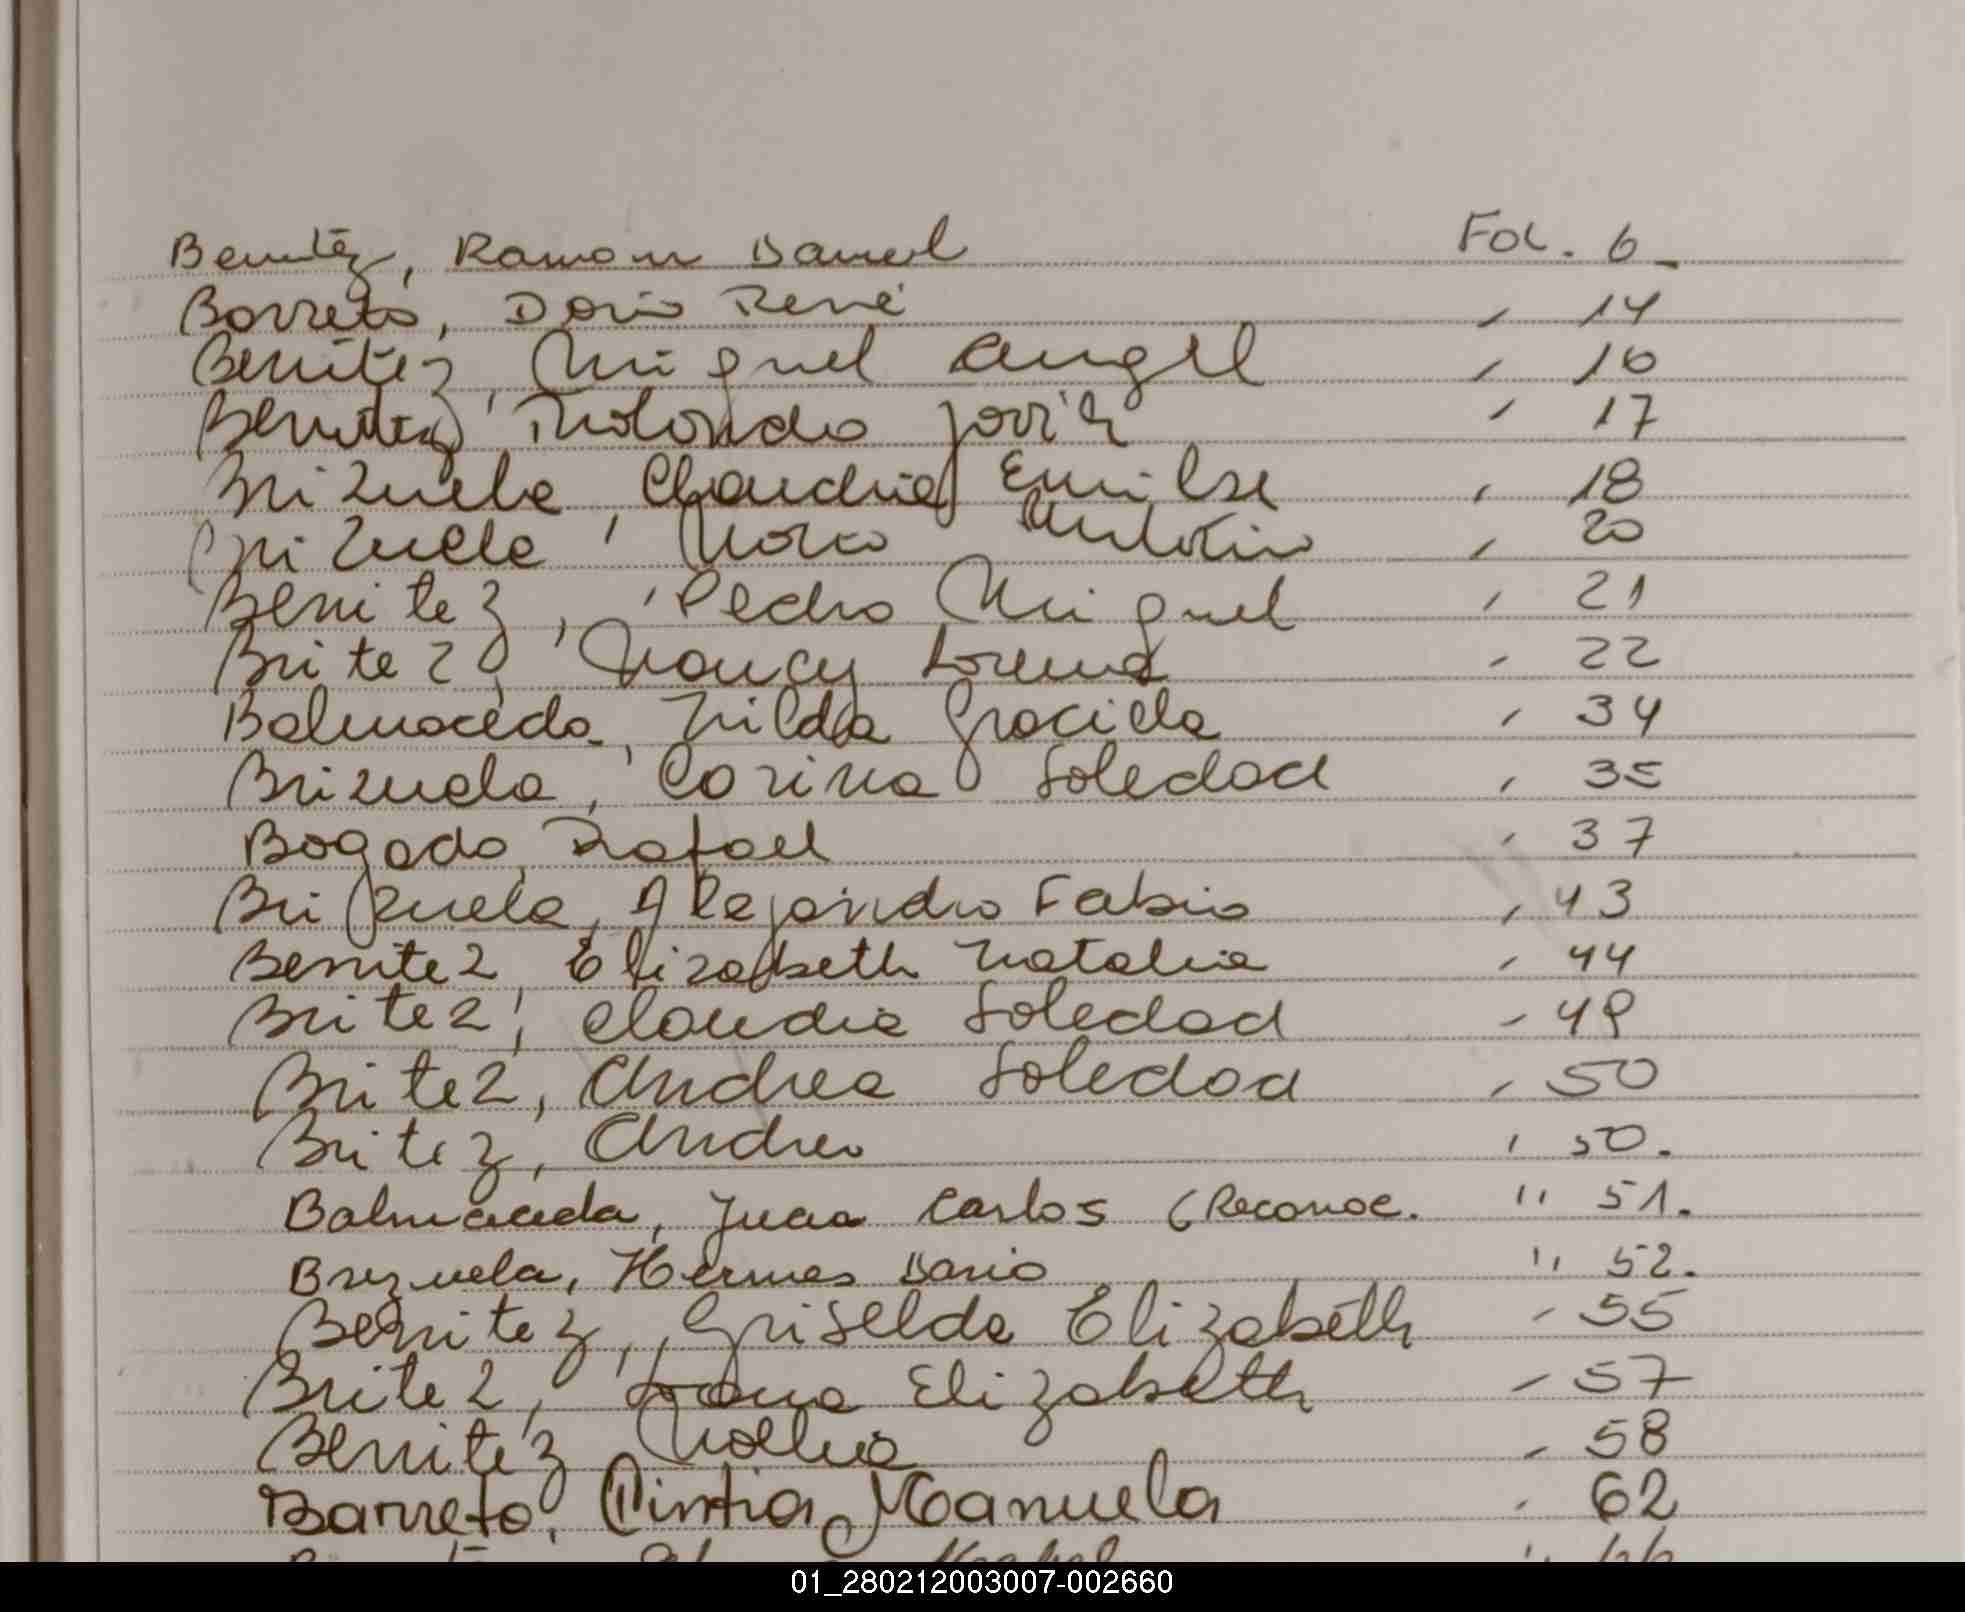 Benitez, Ramon Daniel Fol. 6
Barreto, Dario René " 14
Benitez, Miguel Angel " 16
Benitez, Rolando Javier " 17
Brizuela, Claudia Emilse " 18
Brizuela, Marco Antonio " 20
Benitez, Pedro Miguel " 21
Britez, Nancy Lorena " 22
Balmaceda, Nilda Graciela " 34
Brizuela, Carina Soledad " 35
Bogado, Rafael " 37
Brizuela, Alejandro Fabio " 43
Benitez, Elizabeth Natalia " 44
Britez, Claudia Soledad - 49
Britez, Andrea Soledad " 50
Britez, Andrea " 50.
Balmaceda, Juan Carlos (Reconoc. " 51.
Brizuela, Hermes Dario " 52.
Benitez, Griselda Elizabeth - 55
Britez, Elizabeth - 57
Benitez - 58
Barreto, Cintia Manuela " 62
01_280212003007-002660